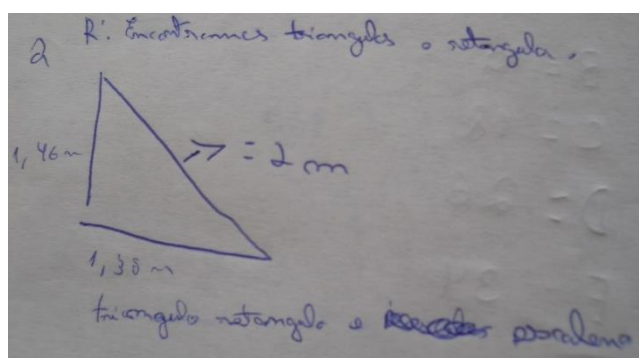 2 R: Encontramos triangulos e retangulo.
1,46 m
= 2 cm
1,38 m
triangulo retangulo e escaleno